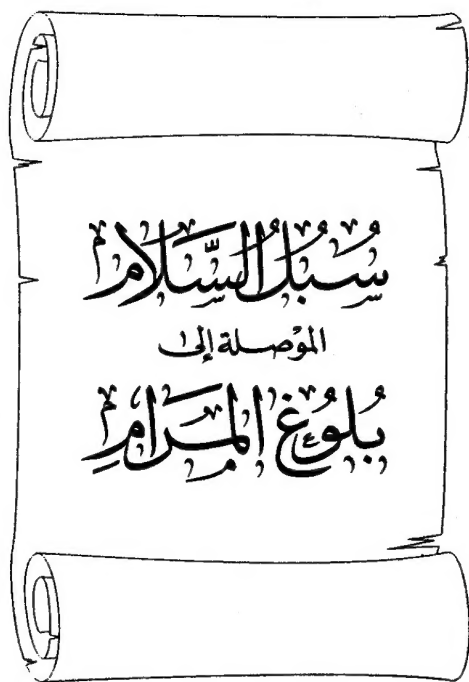 سُبُلُ السَّلَامِ
الموْصلة إلى
بُلُوُغِ المَرَامِ